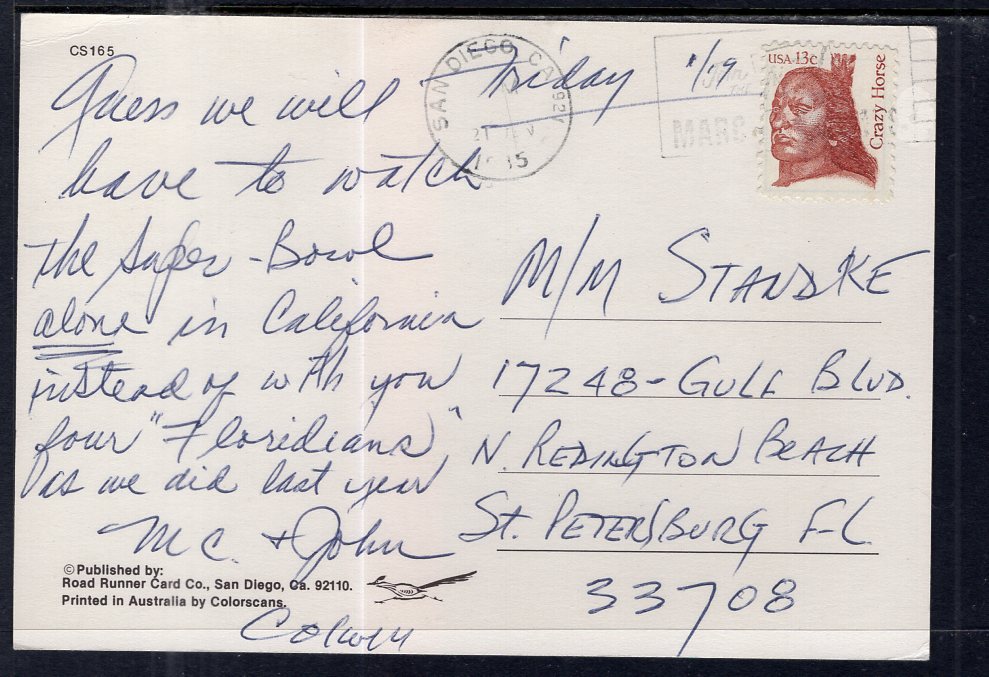 CS165
Friday 1/19
Guess we will
have to watch
the Super-Bowl
alone in California
instead of with you
four "Floridians",
as we did last year
MC. + John
©Published by:
Road Runner Card Co., San Diego, Ca. 92110.
Printed in Australia by Colorscans.
SAN DIEGO, CA
MARC
USA 13c
Crazy Horse
M/M STANDKE
17248-GULF BLVD.
N. REDINGTON BEACH
ST. PETERSBURG FL
33708